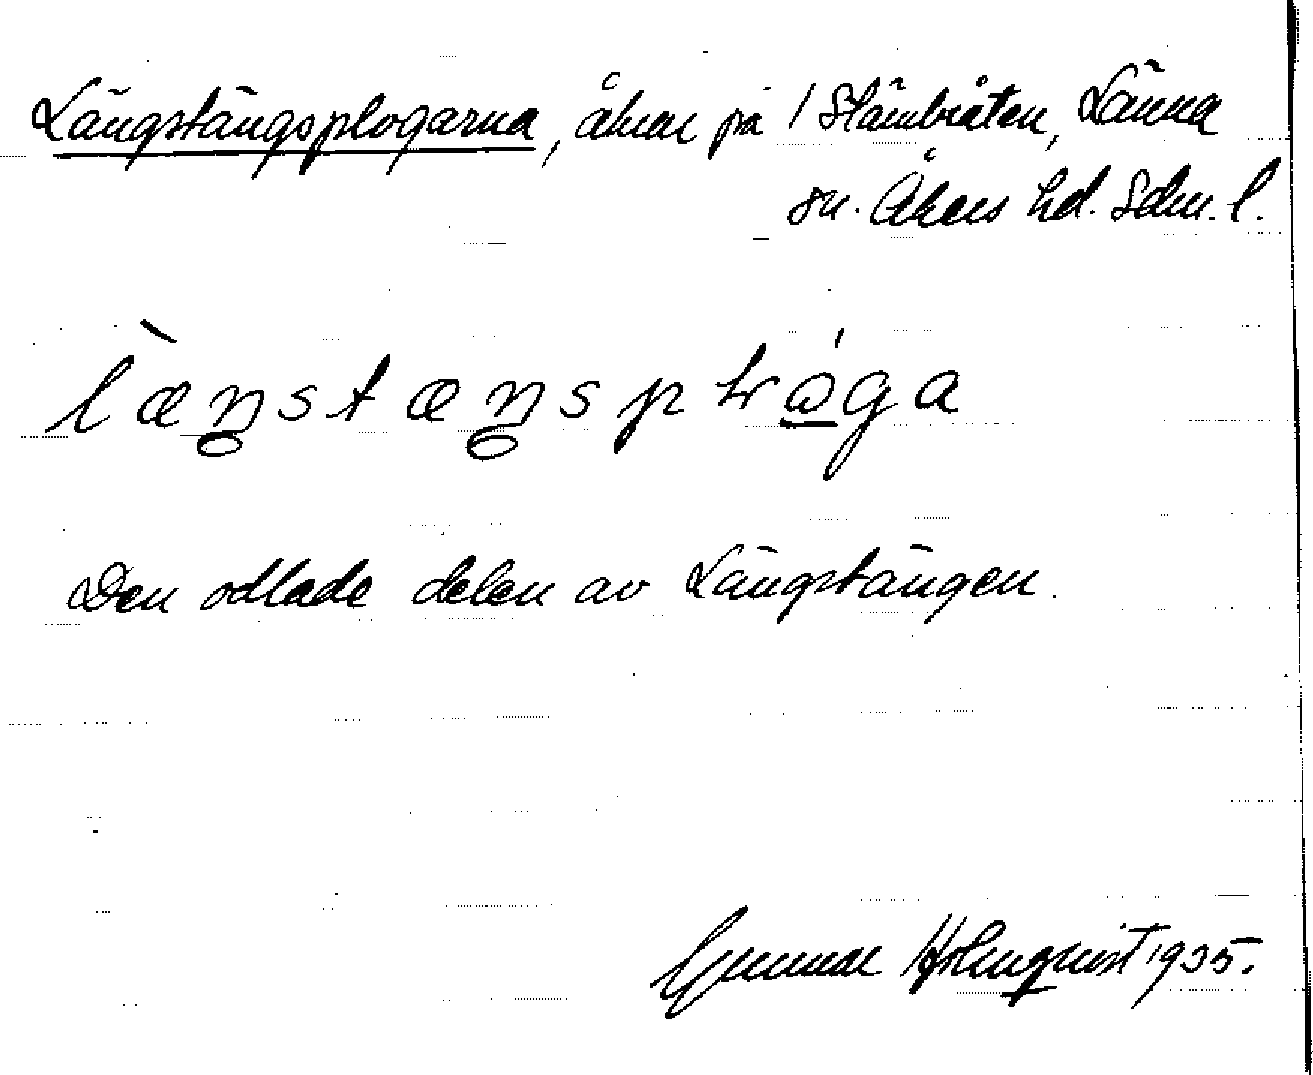 Längstängsplogarna, åkrar på 1 Stämbråten, Länna
sn. Åkers hd. Sdm. l.
læŋstæŋsplo̲ga
Den odlade delen av Längstängen.
Gunnar Holmqvist 1935.